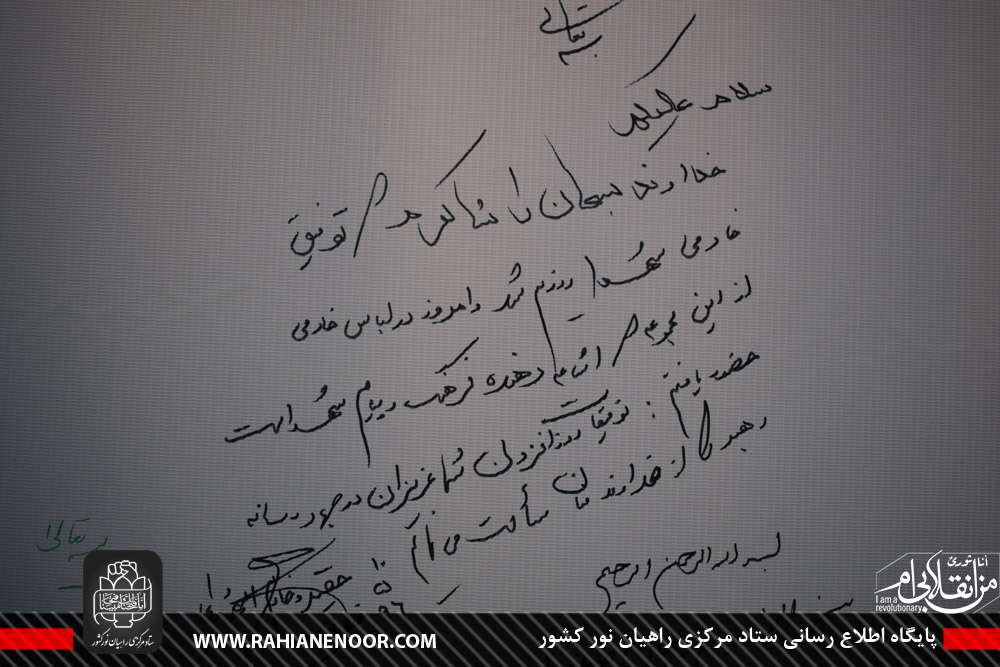 بسمه تعالی
سلام علیکم
خداوند سبحان را شاکرم که توفیق
خادمی شهدا روزیم شد و امروز در لباس خادمی
از این مجموعه که اشاعه دهنده فرهنگ و پیام شهداست
حضور یافتم : توفیقات روزافزون شما عزیزان در جبهه رسانه
رهبر را از خداوند منان مسألت می نمایم
حقیر و خادم
بسمه تعالی
بسم الله الرحمن الرحیم
ستاد مرکزی راهیان نور کشور
انا ثوری
من انقلابی ام
I am a
revolutionary
WWW.RAHIANENOOR.COM
پایگاه اطلاع رسانی ستاد مرکزی راهیان نور کشور